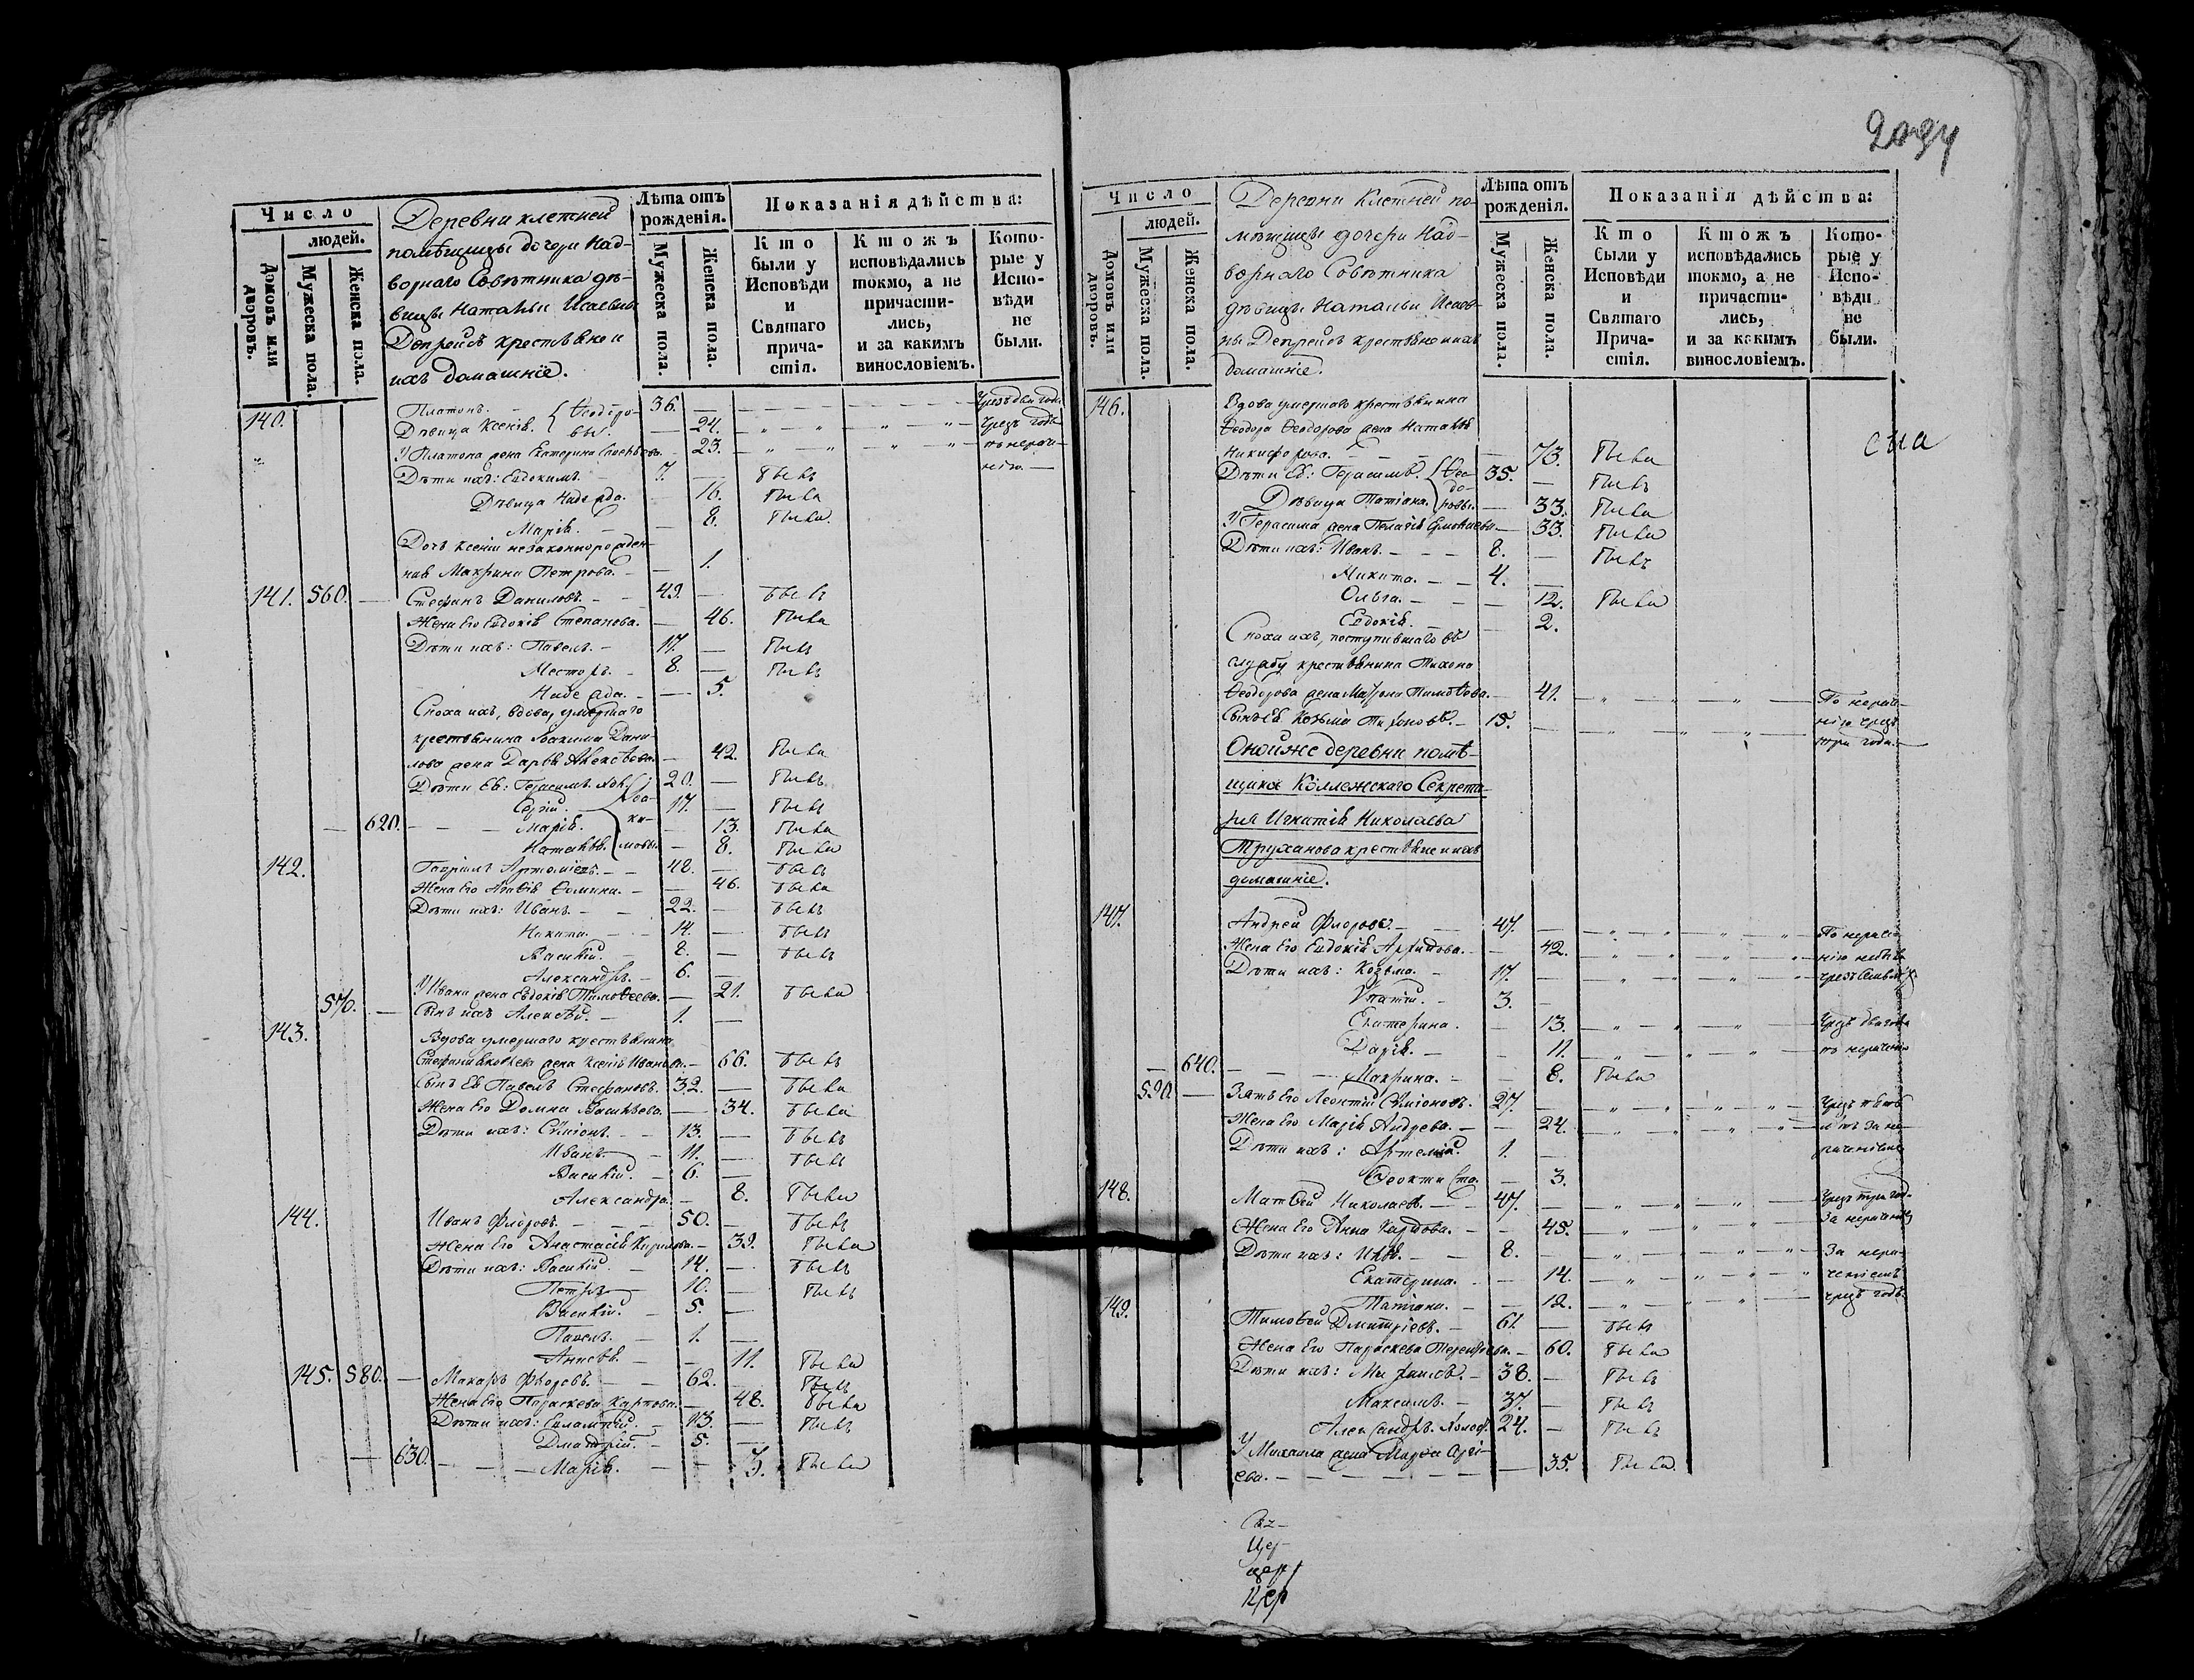 2094
Число
людей.
Домовъ или дворовъ.
Мужеска пола.
Женска пола.
Деревни Клетней
помѣщицы дочери Над-
ворнаго Совѣтника дѣ-
вицы Натальи Исаевны
крестьяне и
ихъ домашніе.
Лѣта отъ рожденія.
Мужеска пола.
Женска пола.
Показанія дѣйства:
Кто были у Исповѣди и Святаго причастія.
Ктожъ исповѣдались токмо, а не причастились, и за какимъ винословіемъ.
Которые у Исповѣди не были.
140. Платонъ. 36. Чрезъ два года
Дѣвица Ксенія. Ѳеодоровы. 24. Чрезъ годъ
У Платона жена Екатерина 23.
Дѣти ихъ: Евдокимъ. 7. былъ
Дѣвица Надежда. 16. была
Марія. 8. была
Дочь Ксеніи незаконнорожден-
ная Макрина Петрова. 1.
141. 560. Стефанъ Даниловъ. 49. былъ
Жена Его Евдокія Степанова. 46. была
Дѣти ихъ: Павелъ. 17. былъ
Несторъ. 8. былъ
Надежда. 5.
Сноха ихъ, вдова, умершаго
крестьянина Іоакима Дани-
лова жена Дарья Алексѣева. 42. была
Дѣти Ея: Герасимъ 20. былъ
Сергій. 17. былъ
620. Марія. 13. была
Наталья. 8. была
142. Гавріилъ Артемьевъ. 48. былъ
Жена Его Ѳомина. 46. была
Дѣти ихъ: Иванъ. 22. былъ
Никита. 14. былъ
Василій. 8. былъ
Александръ. 6.
У Ивана жена Евдокія Тимоѳеева. 21. была
570. Сынъ ихъ Алексѣй. 1.
143. Вдова умершаго крестьянина
жена Ксенія Иванова. 66. былъ
Сынъ Ея Павелъ Стефановъ. 32. была
Жена Его Домна Васильева. 34. была
Дѣти ихъ: Сѵміонъ. 13. былъ
Иванъ. 11. былъ
Василій. 6.
Александра. 8. была
144. Иванъ Флоровъ. 50. былъ
Жена Его Анастасія Карпова. 39. была
Дѣти ихъ: Василій. 14. былъ
Петръ 10. былъ
Василій. 5.
Павелъ. 1.
Анисья. 11. была
145. 580. Макаръ Флоровъ. 62. былъ
Жена Его Параскева Карпова. 48. была
Дѣти ихъ: Евлампій. 13. былъ
Дмитрій. 5.
630. Марія. 7. была
Число
людей.
Домовъ или дворовъ.
Мужеска пола.
Женска пола.
Деревни Клетней по-
мѣщицы дочери Над-
ворнаго Совѣтника
дѣвицы Натальи Исаев-
ны крестьяне и ихъ
домашніе.
Лѣта отъ рожденія.
Мужеска пола.
Женска пола.
Показанія дѣйства:
Кто были у Исповѣди и Святаго Причастія.
Ктожъ исповѣдались токмо, а не причастились, и за какимъ винословіемъ.
Которые у Исповѣди не были.
146. Вдова умершаго крестьянина
Ѳеодора Ѳеодорова жена Наталья
Никифорова. 73. была
Дѣти Ея: Герасимъ. 35. былъ
Дѣвица Татіана. 33. была
У Герасима жена Пелагія 33. была
Дѣти ихъ: Иванъ. 8. былъ
Никита. 4.
Ольга. 12. была
Евдокія. 2.
Сноха ихъ, поступившаго въ
службу крестьянина Тихона
Ѳеодорова жена Матрона Тимоѳеева. 41. По нераче-
Сынъ Ея Козьма Тихоновъ. 15. нію чрезъ
три года.
Онойже деревни помѣ-
щика Коллежскаго Секрета-
ря Игнатія Николаева
Труханова крестьяне и ихъ
домашніе.
147. Андрей Флоровъ. 47. По нераче-
Жена Его Евдокія Архипова. 42. нію
Дѣти ихъ: Козьма. 17.
Ипатій. 3.
Екатерина. 13. Чрезъ два года
Дарія. 11. по нераченію
640. Макрина. 8. была
590. Зять Его Леонтій Сѵміоновъ. 27. Чрезъ пять
Жена Его Марія Андреева. 24. лѣтъ за не-
Дѣти ихъ: Артемій. 1. раченіемъ
Ѳеоктиста. 3.
148. Матѳей Николаевъ. 47. Чрезъ три года
Жена Его Анна Карпова. 45. За нераченіе
Дѣти ихъ: Илья. 8. За нера-
Екатерина. 14. ченіемъ
Татіана. 12. чрезъ годъ.
149. Тимоѳей Дмитріевъ. 61. былъ
Жена Его Параскева Терентьева. 60. была
Дѣти ихъ: Михаилъ. 38. былъ
Максимъ. 37. былъ
Александръ. Холос. 24. былъ
У Михаила жена Марѳа Сергі-
ева. 35. была